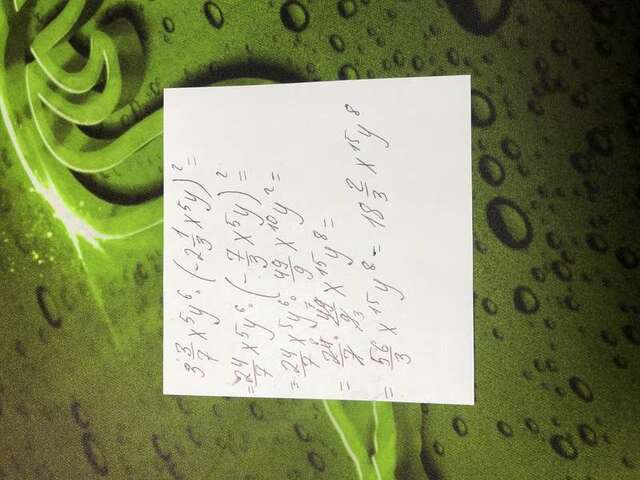 3 3/7 x⁵y⁶ · (-2 1/3 x⁵y)² =
= 24/7 x⁵y⁶ · (- 7/3 x⁵y)² =
= 24/7 x⁵y⁶ · 49/9 x¹⁰y² =
= 24⁸/7 · 49⁷/9₃ x¹⁵y⁸ =
= 56/3 x¹⁵y⁸ = 18 2/3 x¹⁵y⁸